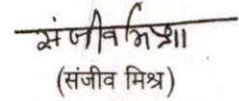 संजीव मिश्रा
(संजीव मिश्र)